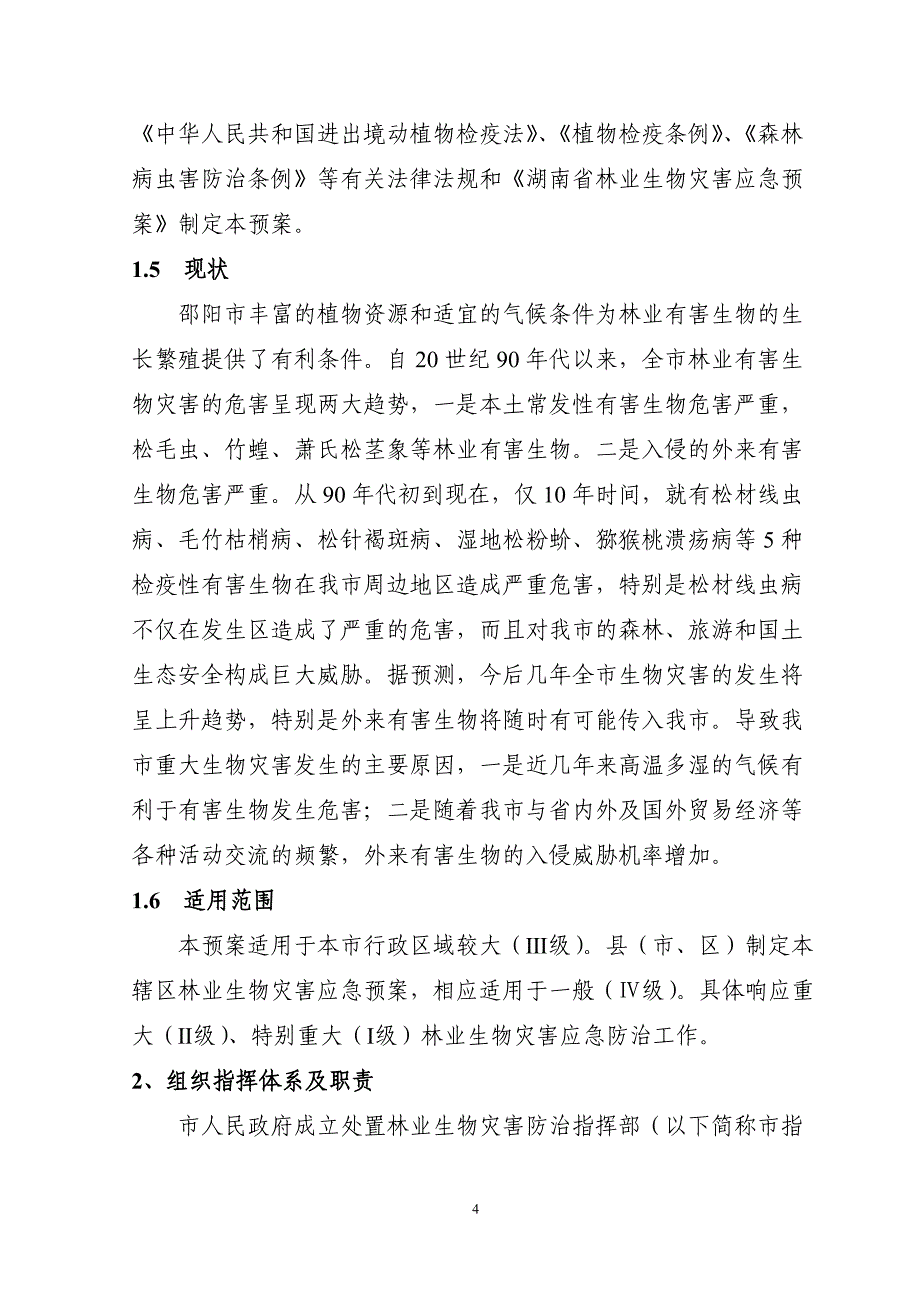 《中华人民共和国进出境动植物检疫法》、《植物检疫条例》、《森林
病虫害防治条例》等有关法律法规和《湖南省林业生物灾害应急预
案》制定本预案。
1.5 现状
邵阳市丰富的植物资源和适宜的气候条件为林业有害生物的生
长繁殖提供了有利条件。自 20 世纪 90 年代以来，全市林业有害生
物灾害的危害呈现两大趋势，一是本土常发性有害生物危害严重，
松毛虫、竹蝗、萧氏松茎象等林业有害生物。二是入侵的外来有害
生物危害严重。从 90 年代初到现在，仅 10 年时间，就有松材线虫
病、毛竹枯梢病、松针褐斑病、湿地松粉蚧、猕猴桃溃疡病等 5 种
检疫性有害生物在我市周边地区造成严重危害，特别是松材线虫病
不仅在发生区造成了严重的危害，而且对我市的森林、旅游和国土
生态安全构成巨大威胁。据预测，今后几年全市生物灾害的发生将
呈上升趋势，特别是外来有害生物将随时有可能传入我市。导致我
市重大生物灾害发生的主要原因，一是近几年来高温多湿的气候有
利于有害生物发生危害；二是随着我市与省内外及国外贸易经济等
各种活动交流的频繁，外来有害生物的入侵威胁机率增加。
1.6 适用范围
本预案适用于本市行政区域较大（Ⅲ级）。县（市、区）制定本
辖区林业生物灾害应急预案，相应适用于一般（Ⅳ级）。具体响应重
大（Ⅱ级）、特别重大（Ⅰ级）林业生物灾害应急防治工作。
2、组织指挥体系及职责
市人民政府成立处置林业生物灾害防治指挥部（以下简称市指
4